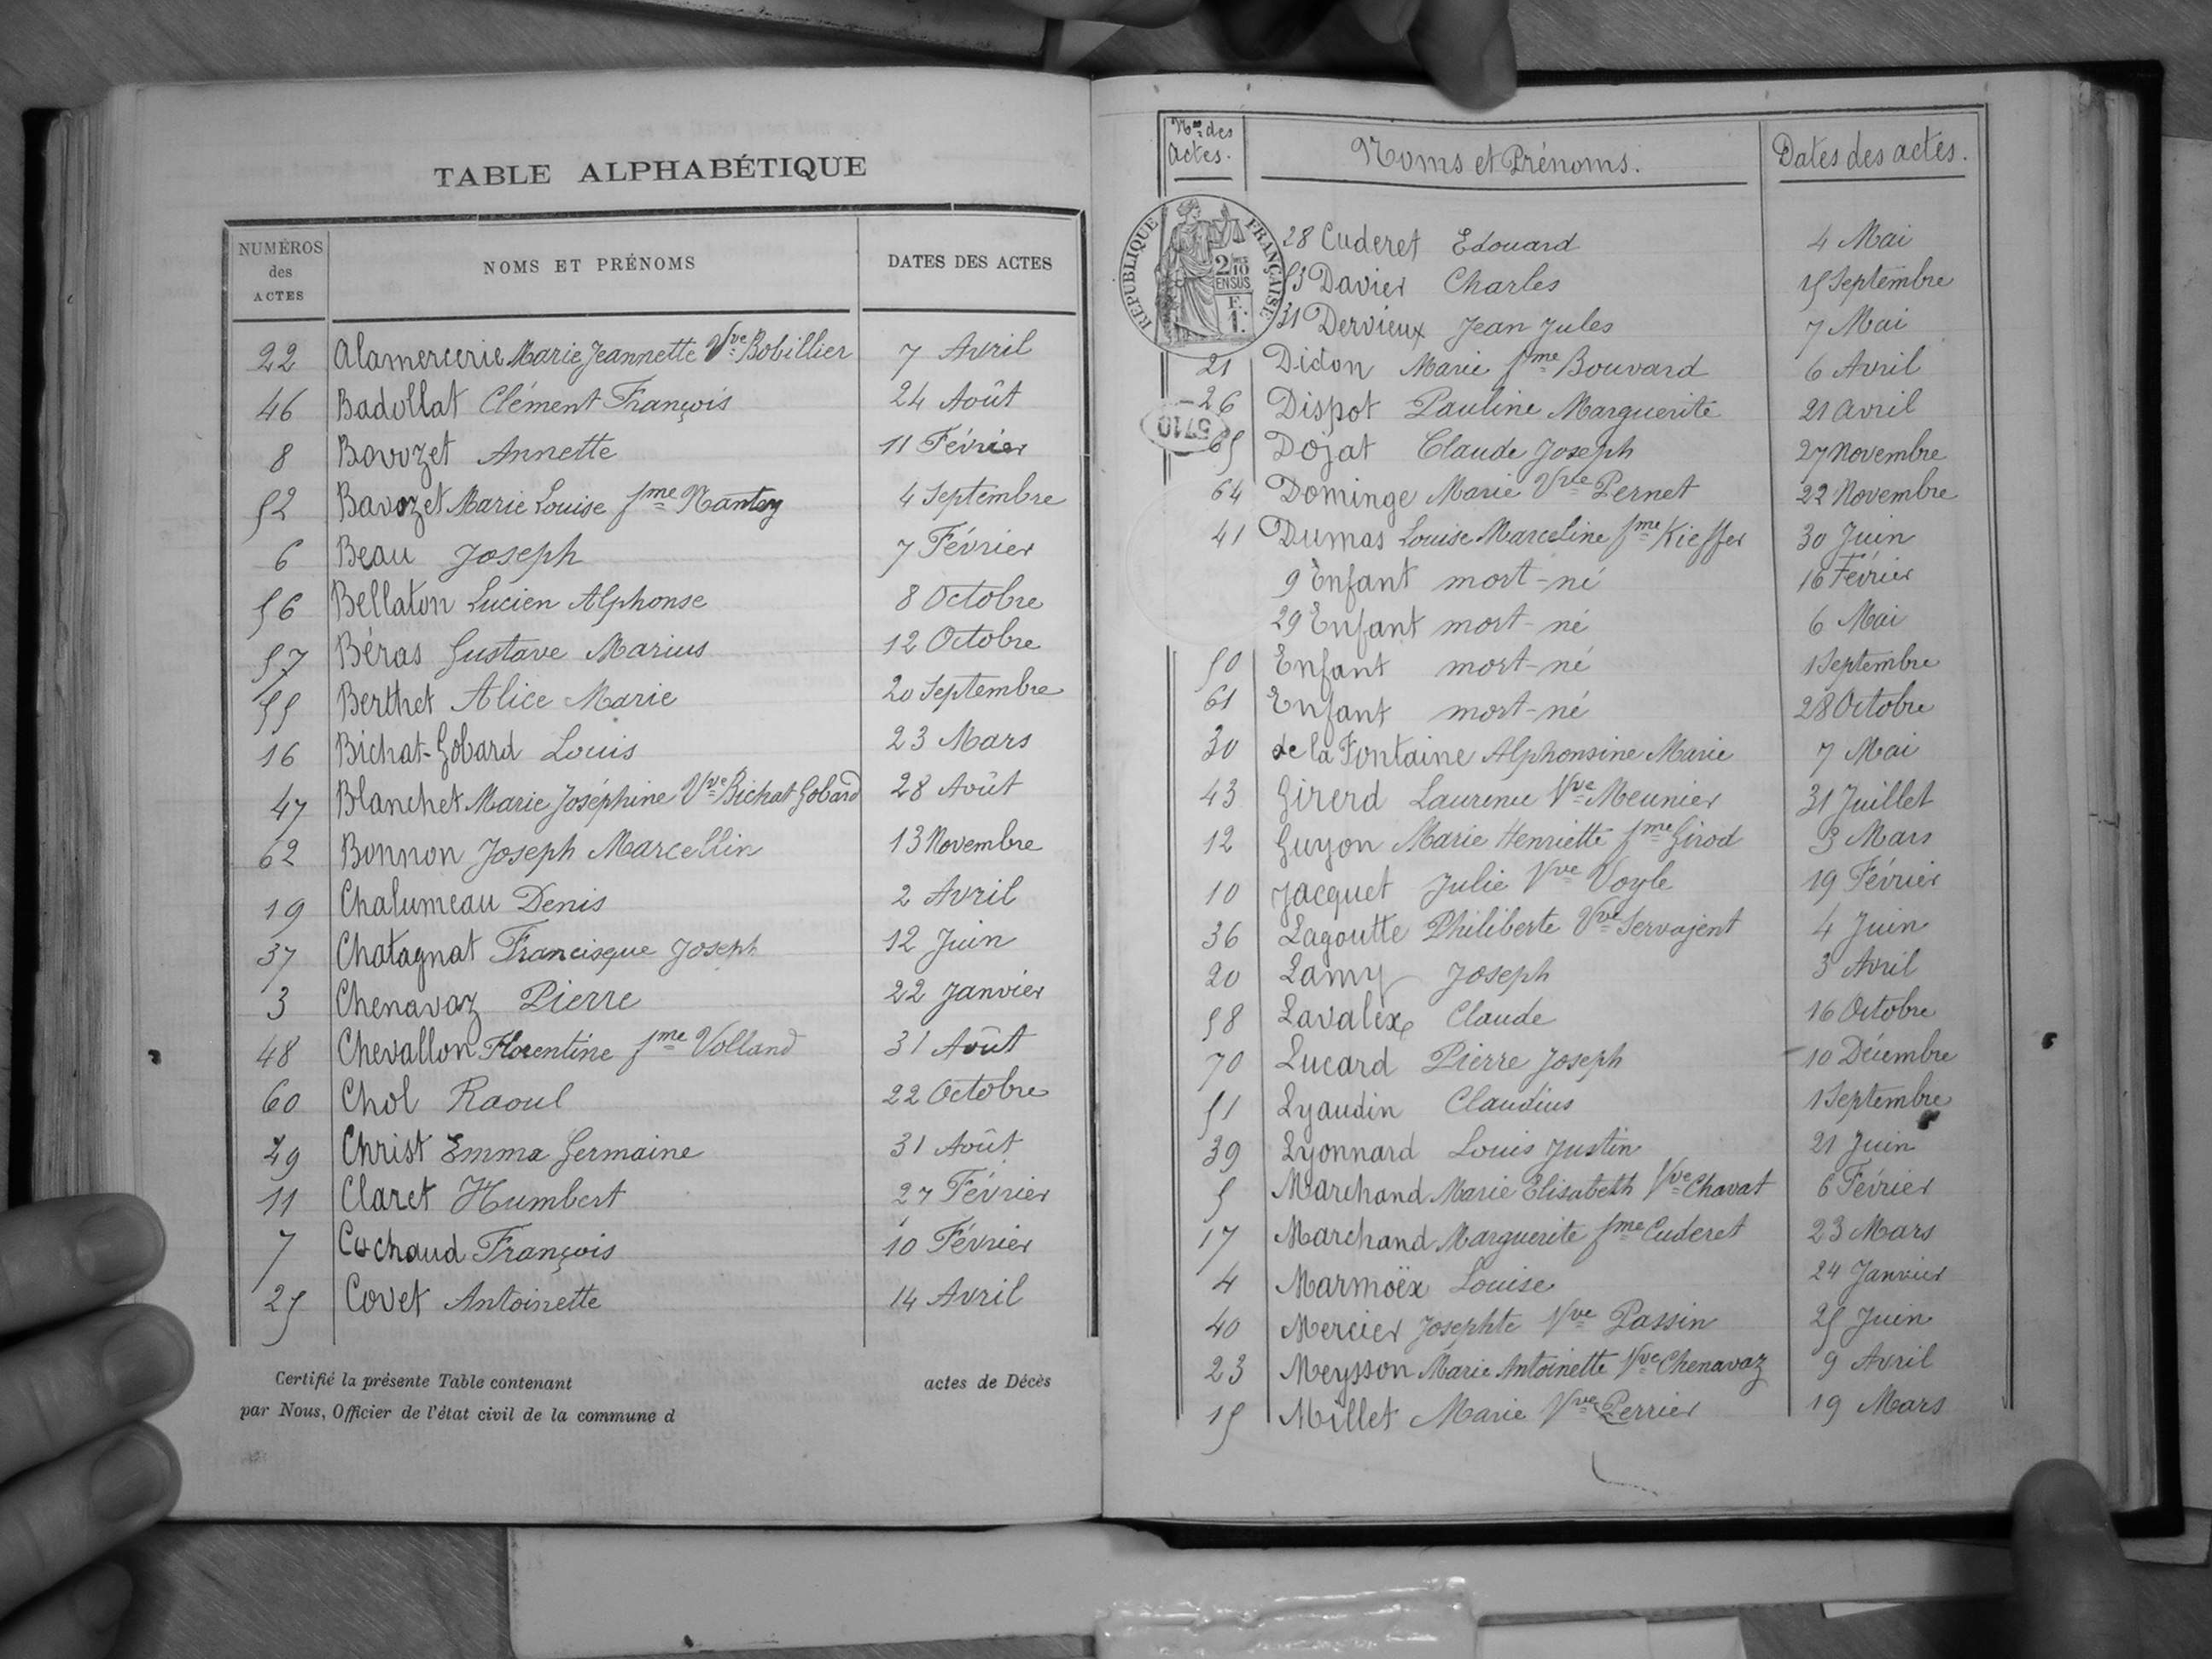 TABLE ALPHABÉTIQUE
NUMÉROS des ACTES NOMS ET PRÉNOMS DATES DES ACTES
22 Alamercerie Marie Jeannette Vve Bobillier 7 Avril
46 Badollat Clément François 24 Août
8 Bavozet Annette 11 Février
52 Bavozet Marie Louise fme Nantey 4 Septembre
6 Beau Joseph 7 Février
56 Bellaton Lucien Alphonse 8 Octobre
57 Béras Gustave Marius 12 Octobre
55 Berthet Alice Marie 20 Septembre
16 Bichat-Gobard Louis 23 Mars
47 Blanchet Marie Joséphine Vve Bichat Gobard 28 Août
62 Bonnon Joseph Marcellin 13 Novembre
19 Chalumeau Denis 2 Avril
37 Chatagnat Francisque Joseph 12 Juin
3 Chenavaz Pierre 22 Janvier
48 Chevallon Florentine fme Volland 31 Août
60 Chol Raoul 22 Octobre
49 Christ Emma Germaine 31 Août
11 Claret Humbert 27 Février
7 Cochaud François 10 Février
25 Covet Antoinette 14 Avril
Certifié la présente Table contenant actes de Décès
par Nous, Officier de l'état civil de la commune d
Nos des Actes. Noms et Prénoms. Dates des actes.
RÉPUBLIQUE FRANÇAISE
2/10 EN SUS
F. 1.
28 Cuderet Edouard 4 Mai
53 Davier Charles 15 Septembre
31 Dervieux Jean Jules 7 Mai
21 Didon Marie fme Bouvard 6 Avril
26 Dispot Pauline Marguerite 21 avril
5710
65 Dojat Claude Joseph 27 Novembre
64 Dominge Marie Vve Pernet 22 Novembre
41 Dumas Louise Marceline fme Kieffer 30 Juin
9 Enfant mort-né 16 Février
29 Enfant mort-né 6 Mai
50 Enfant mort-né 1 Septembre
61 Enfant mort-né 28 Octobre
30 de la Fontaine Alphonsine Marie 7 Mai
43 Girerd Laurence Vve Meunier 31 Juillet
12 Guyon Marie Henriette fme Girod 3 Mars
10 Jacquet Julie Vve Voyle 19 Février
36 Lagoutte Philiberte Vve Servajent 4 Juin
20 Lamy Joseph 3 Avril
58 Lavalex Claude 16 Octobre
70 Lucard Pierre Joseph 10 Décembre
51 Lyaudin Claudius 1 Septembre
39 Lyonnard Louis Justin 21 Juin
5 Marchand Marie Elisabeth Vve Chavat 6 Février
17 Marchand Marguerite fme Cuderet 23 Mars
4 Marmoëx Louise 24 Janvier
40 Mercier Josephte Vve Passin 25 Juin
23 Meysson Marie Antoinette Vve Chenavaz 9 Avril
15 Millet Marie Vve Perrier 19 Mars